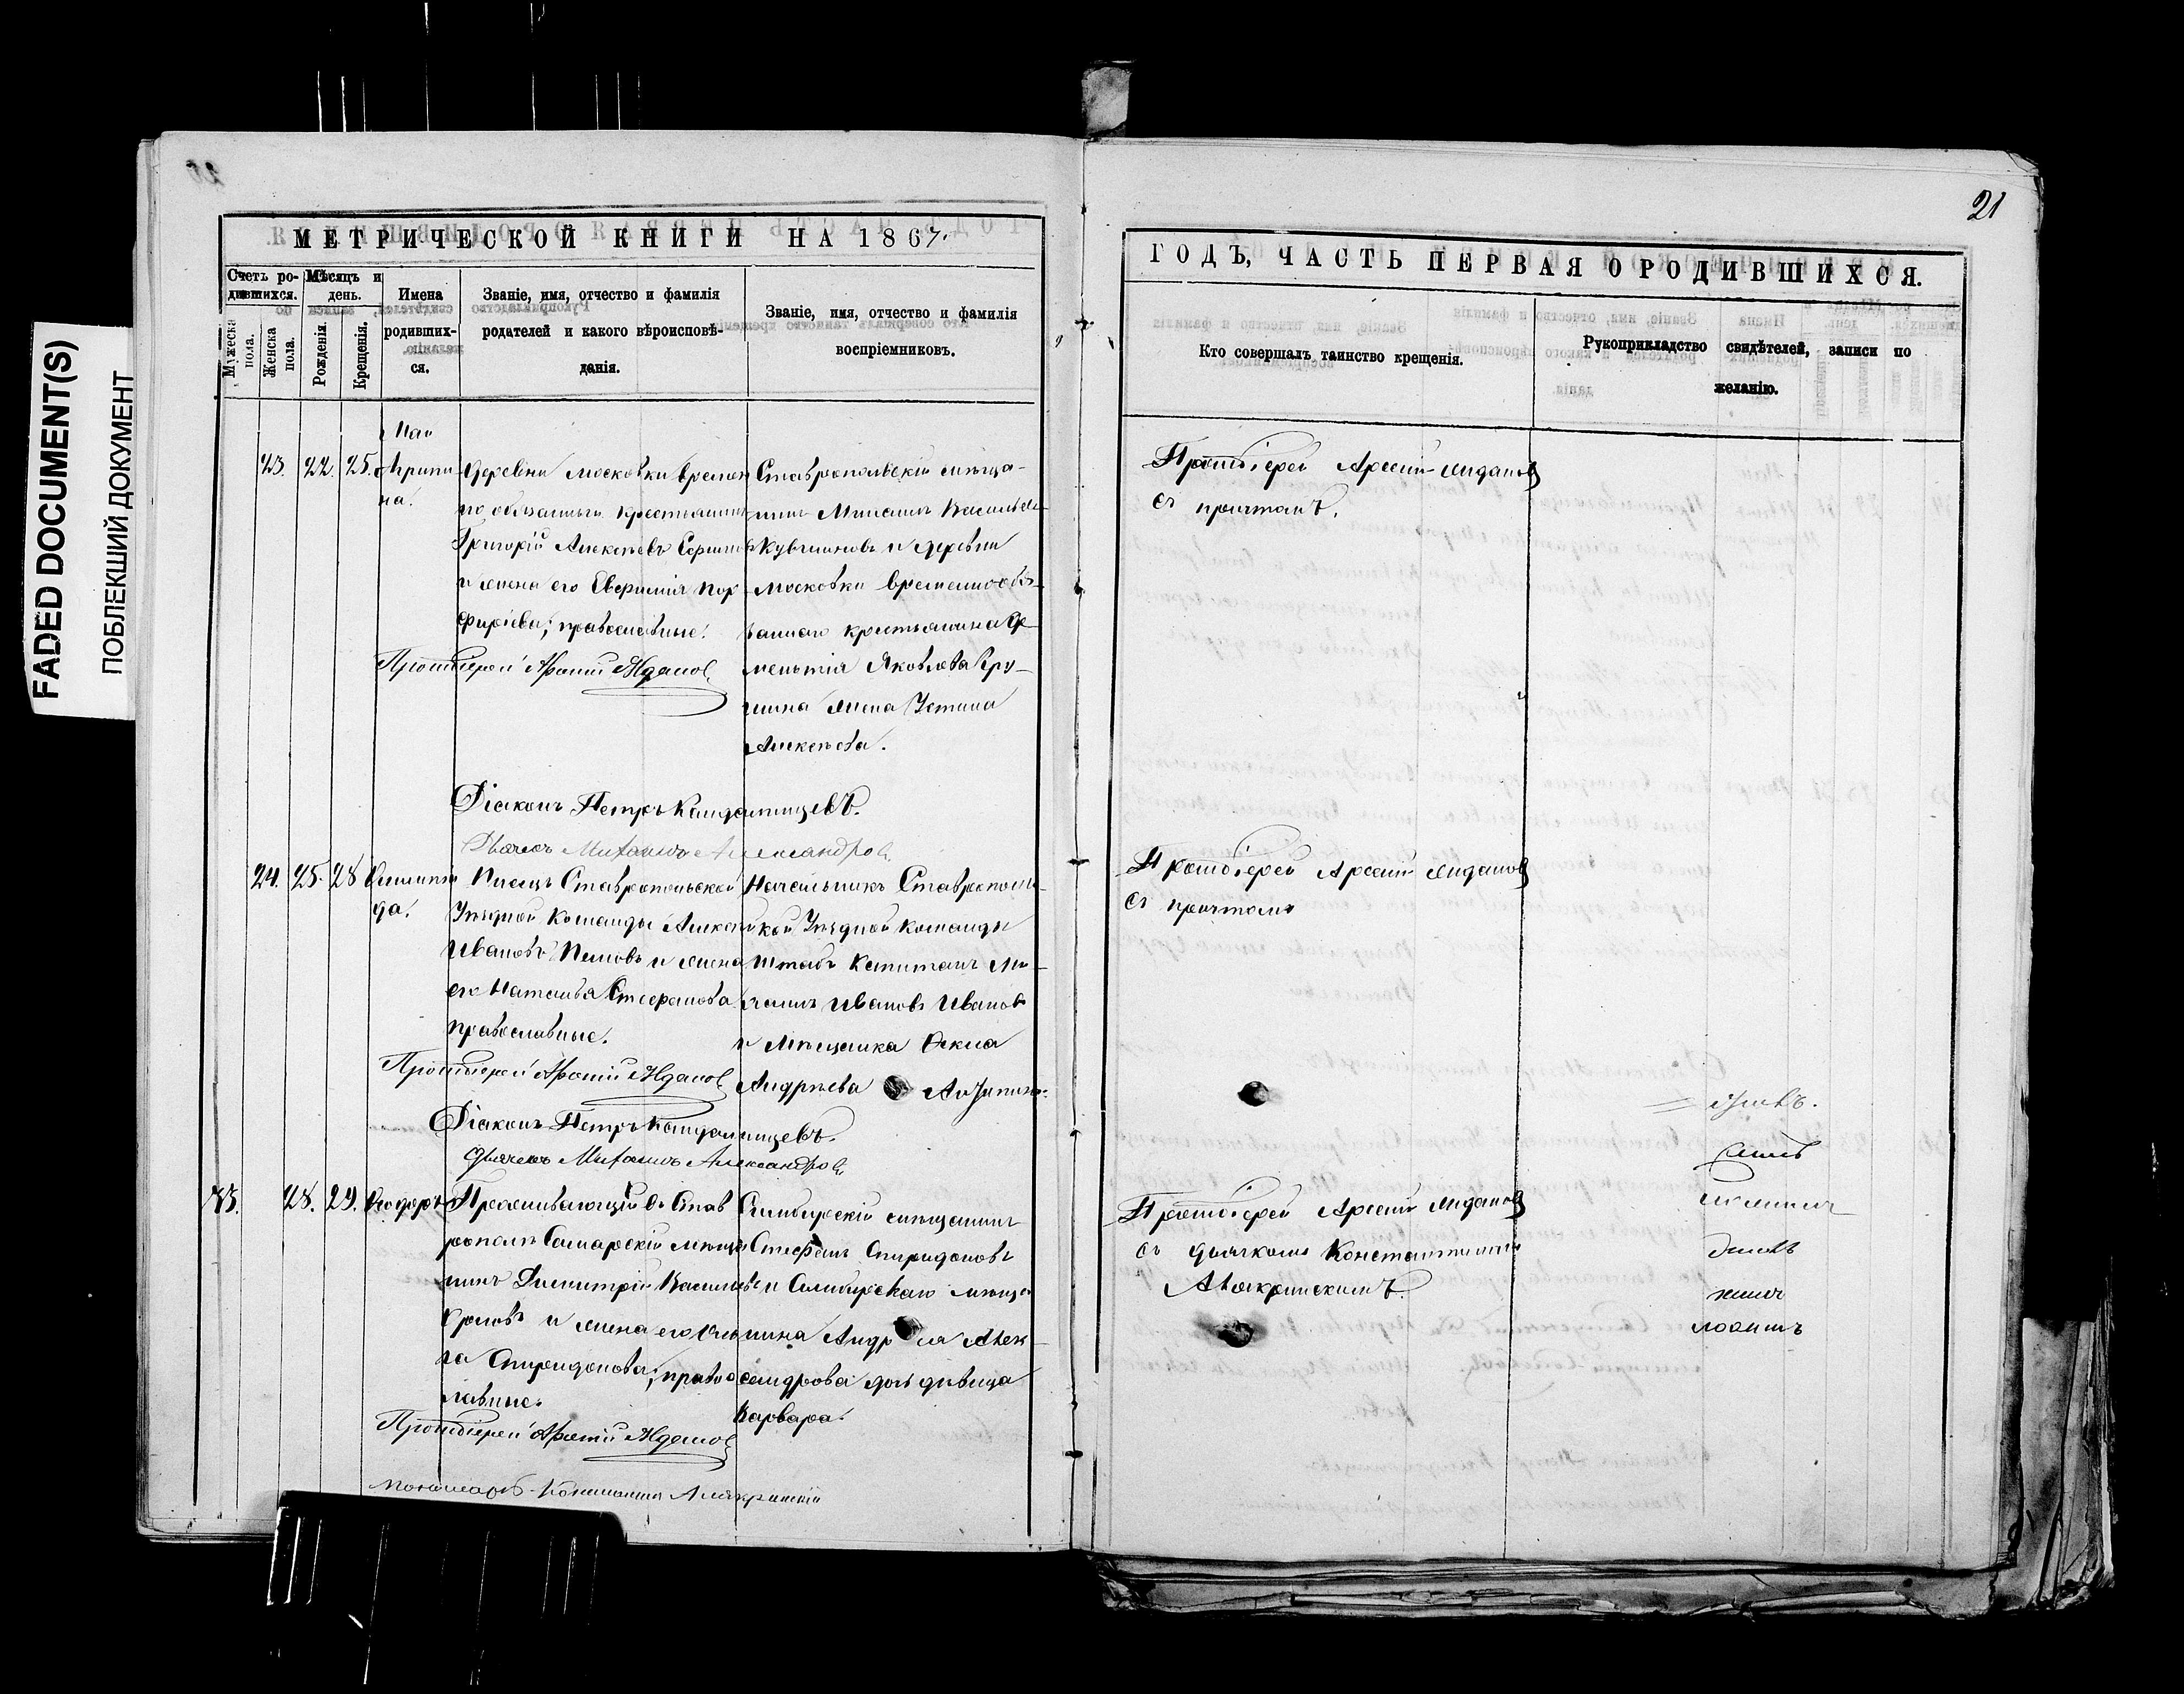 FADED DOCUMENT(S)
ПОБЛЕКШИЙ ДОКУМЕНТ
МЕТРИЧЕСКОЙ КНИГИ НА 1867.
Счетъ ро-
дившихся.
Мѣсяцъ и
день.
Мужеска
пола.
Женска
пола.
Рожденія.
Крещенія.
Имена
родивших-
ся.
Званіе, имя, отчество и фамилія
родателей и какого вѣроисповѣ-
данія.
Званіе, имя, отчество и фамилія
воспріемниковъ.
Маи
23. 22. 25. Агрипи
на.
Деревни Московки времен
но обязанный крестьянинъ
Григорій Алексѣевъ
и жена его Евфимія Пор
фиріева; православные.
Протоіерей Арсеній Ждановъ
Ставропольскій мѣща-
нинъ Михаилъ Васильевъ
и деревни
Московки временнообя-
заннаго крестьянина
Яковлева
жена Устина
Алексѣева.
Діаконъ Петръ
Дьячекъ Михаилъ Александровъ
24. 25. 28 Олимпіа
да.
Писецъ Ставропольской
Уѣздной Команды Алексѣй
Ивановъ и жена
его Наталья Стефанова
православные.
Протоіерей Арсеній Ждановъ
Начальникъ Ставрополь-
кой Уѣздной Команды
Штабъ Капитанъ Ми-
хаилъ Ивановъ Ивановъ
и Мѣщанка
Андрѣева
Діаконъ Петръ
Дьячекъ Михаилъ Александровъ
28. 29. Ѳеодоръ
Проживающій въ Став
рополѣ Самарскій мѣща
нинъ Димитрій Васильевъ
Орловъ и жена его Оль
га Спиридонова; правос
лавные.
Протоіерей Арсеній Ждановъ
Симбирскій мѣщанинъ
Стефанъ Спиридоновъ
и Симбирскаго мѣща
нина Андрея Алек-
сандрова дочь дѣвица
Варвара.
Пономарь Константинъ Алякринскій
21
ГОДЪ, ЧАСТЬ ПЕРВАЯ О РОДИВШИХСЯ.
Кто совершалъ таинство крещенія.
Рукоприкладство свидѣтелей, записи по
желанію.
Протоіерей Арсеній Ждановъ
съ причтомъ.
Протоіерей Арсеній Ждановъ
съ причтомъ
Протоіерей Арсеній Ждановъ
съ дьячкомъ Константиномъ
Алякринскимъ.